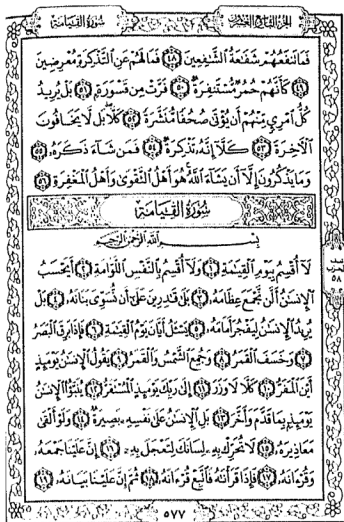 سُورَةُ القِيَامَةِ الجزء التاسع والعشرون
فَمَا تَنفَعُهُمْ شَفَاعَةُ الشَّافِعِينَ ٤٨ فَمَا لَهُمْ عَنِ التَّذْكِرَةِ مُعْرِضِينَ
٤٩ كَأَنَّهُمْ حُمُرٌ مُّسْتَنفِرَةٌ ٥٠ فَرَّتْ مِن قَسْوَرَةٍ ٥١ بَلْ يُرِيدُ
كُلُّ امْرِئٍ مِّنْهُمْ أَن يُؤْتَىٰ صُحُفًا مُّنَشَّرَةً ٥٢ كَلَّا بَل لَّا يَخَافُونَ
الْآخِرَةَ ٥٣ كَلَّا إِنَّهُ تَذْكِرَةٌ ٥٤ فَمَن شَاءَ ذَكَرَهُ ٥٥
وَمَا يَذْكُرُونَ إِلَّا أَن يَشَاءَ اللَّهُ هُوَ أَهْلُ التَّقْوَىٰ وَأَهْلُ الْمَغْفِرَةِ ٥٦
سُورَةُ القِيَامَةِ
بِسْمِ اللَّهِ الرَّحْمَٰنِ الرَّحِيمِ
لَا أُقْسِمُ بِيَوْمِ الْقِيَامَةِ ١ وَلَا أُقْسِمُ بِالنَّفْسِ اللَّوَّامَةِ ٢ أَيَحْسَبُ
الْإِنسَانُ أَلَّن نَّجْمَعَ عِظَامَهُ ٣ بَلَىٰ قَادِرِينَ عَلَىٰ أَن نُّسَوِّيَ بَنَانَهُ ٤ بَلْ
يُرِيدُ الْإِنسَانُ لِيَفْجُرَ أَمَامَهُ ٥ يَسْأَلُ أَيَّانَ يَوْمُ الْقِيَامَةِ ٦ فَإِذَا بَرِقَ الْبَصَرُ
٧ وَخَسَفَ الْقَمَرُ ٨ وَجُمِعَ الشَّمْسُ وَالْقَمَرُ ٩ يَقُولُ الْإِنسَانُ يَوْمَئِذٍ
أَيْنَ الْمَفَرُّ ١٠ كَلَّا لَا وَزَرَ ١١ إِلَىٰ رَبِّكَ يَوْمَئِذٍ الْمُسْتَقَرُّ ١٢ يُنَبَّأُ الْإِنسَانُ
يَوْمَئِذٍ بِمَا قَدَّمَ وَأَخَّرَ ١٣ بَلِ الْإِنسَانُ عَلَىٰ نَفْسِهِ بَصِيرَةٌ ١٤ وَلَوْ أَلْقَىٰ
مَعَاذِيرَهُ ١٥ لَا تُحَرِّكْ بِهِ لِسَانَكَ لِتَعْجَلَ بِهِ ١٦ إِنَّ عَلَيْنَا جَمْعَهُ
وَقُرْآنَهُ ١٧ فَإِذَا قَرَأْنَاهُ فَاتَّبِعْ قُرْآنَهُ ١٨ ثُمَّ إِنَّ عَلَيْنَا بَيَانَهُ ١٩
نصف
الحزب
٥٨
٥٧٧